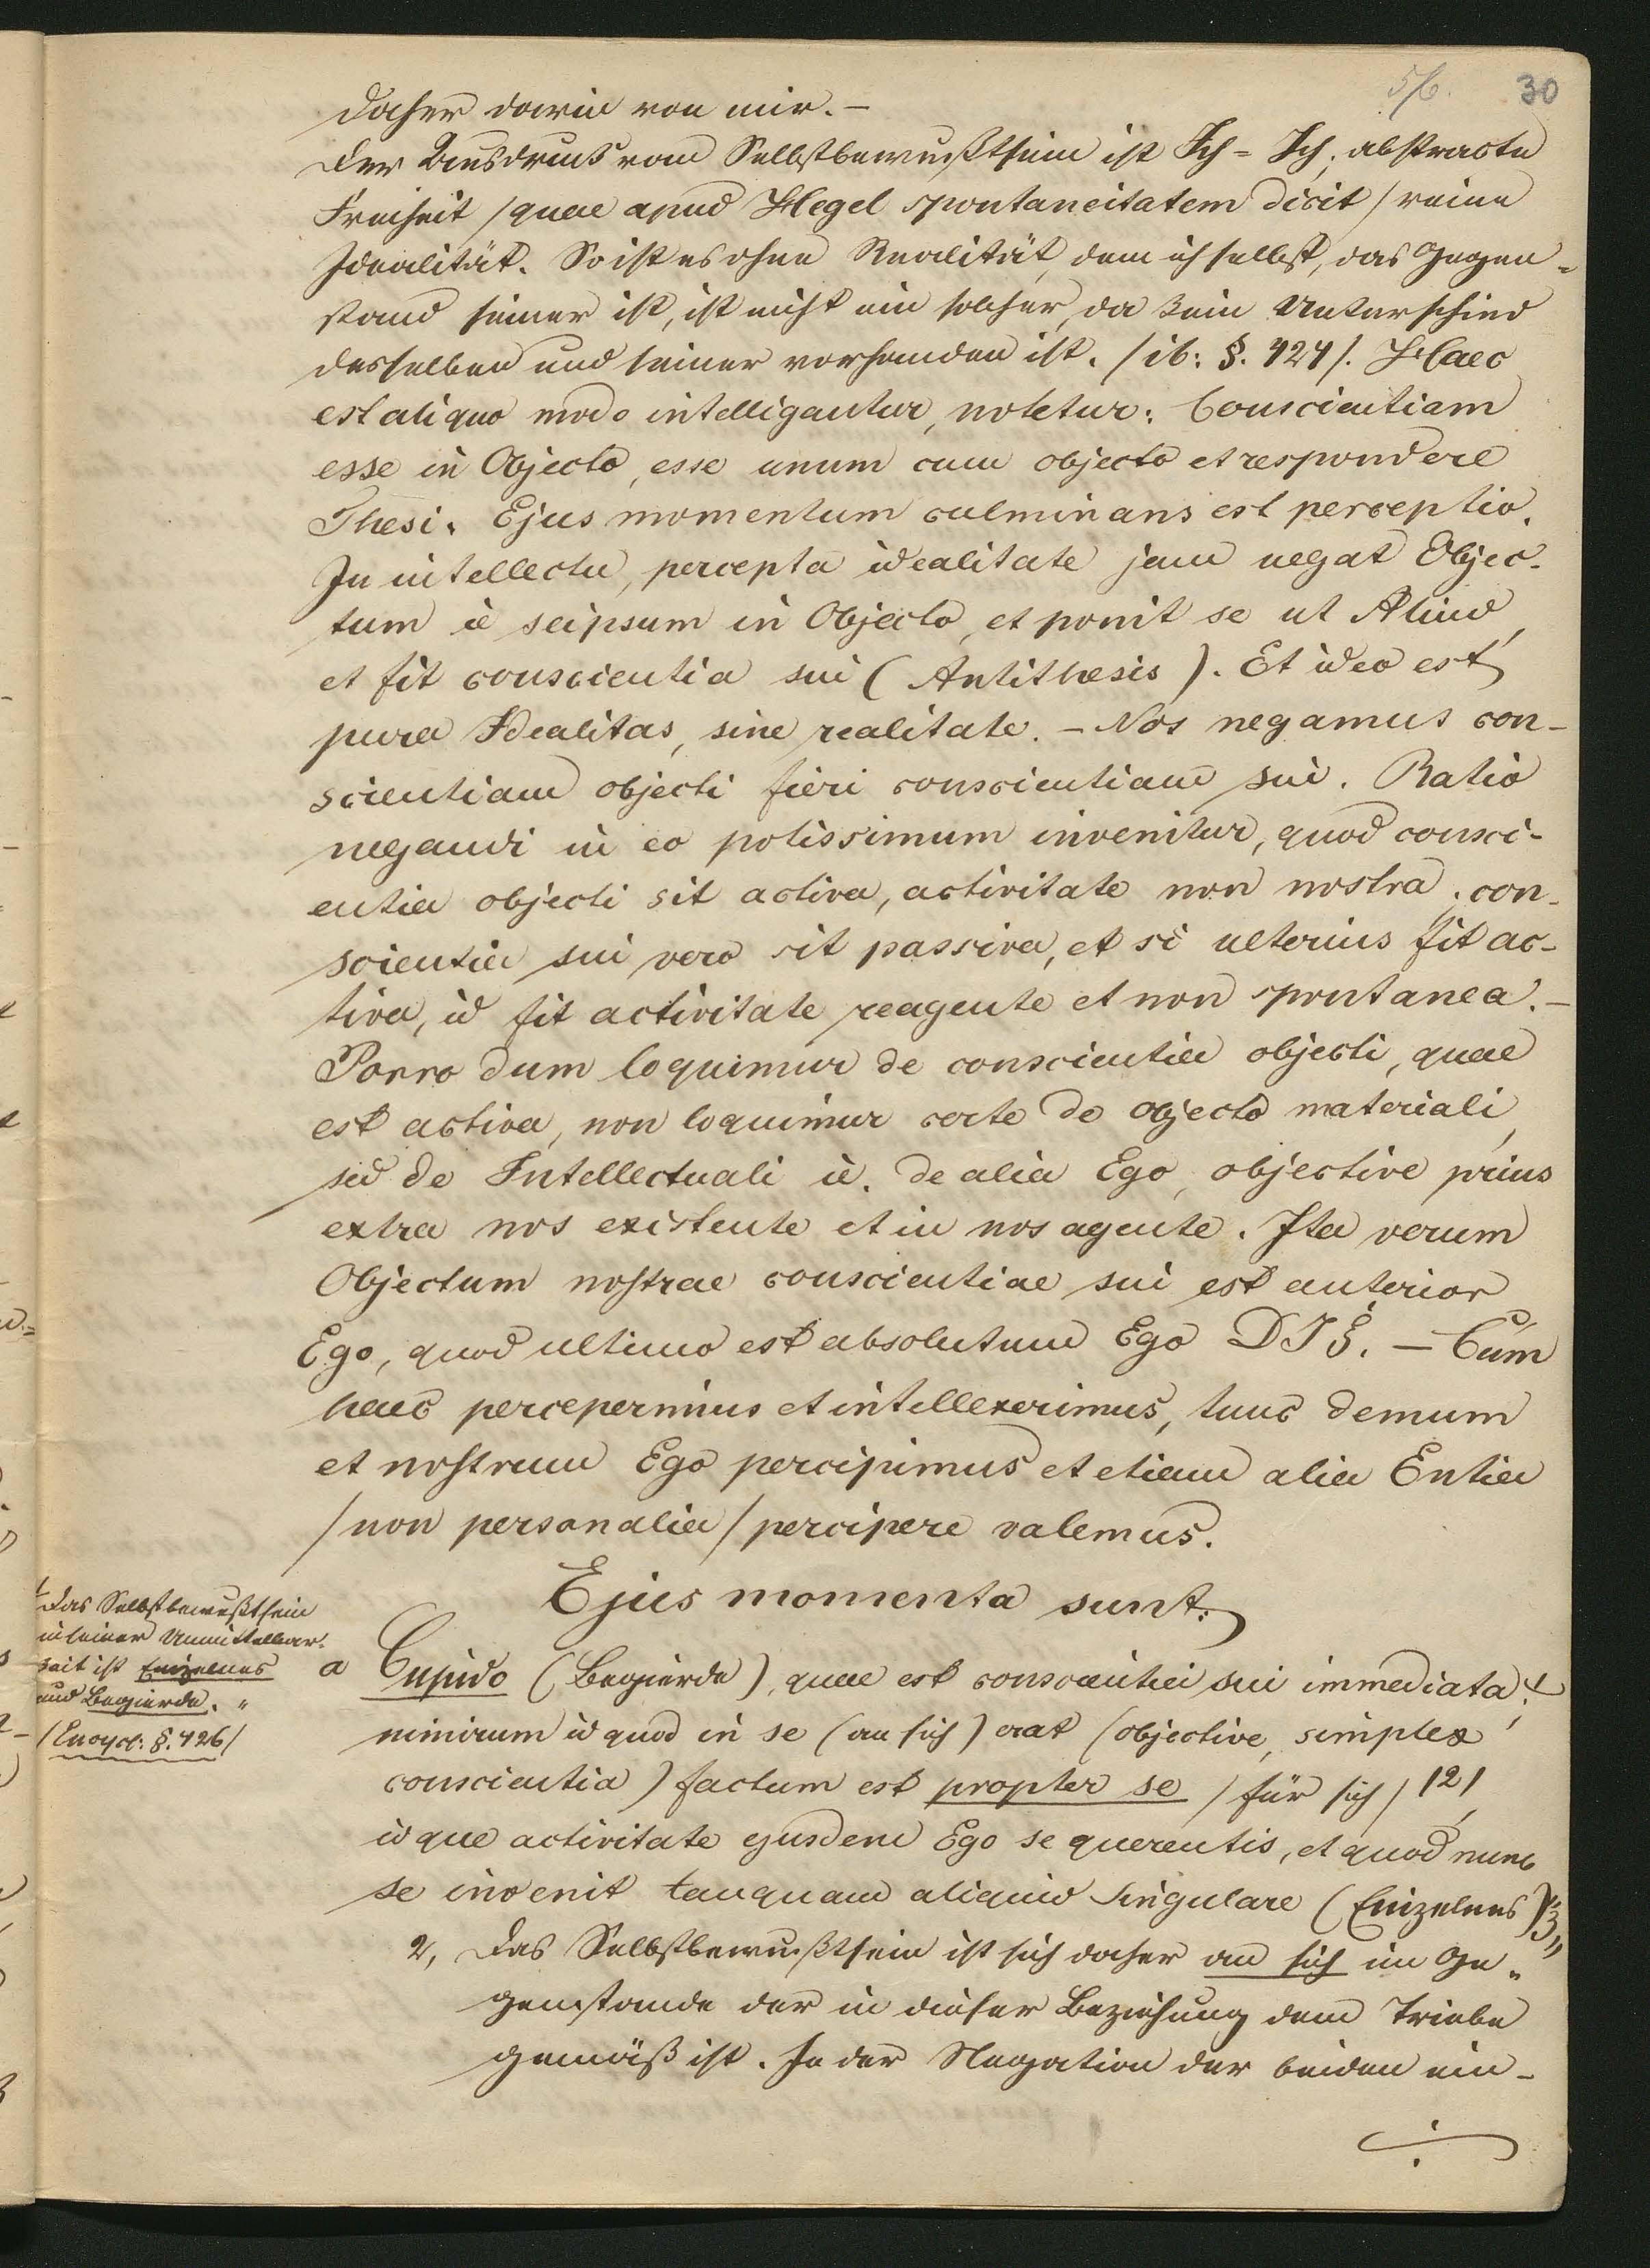 5/6. 30
daher darin von mir. –
Der Ausdruck vom Selbstbewußtsein ist Ich = Ich; abstracte
Freiheit /quae apud Hegel spontaneitatem dicit/ reine
Idealität. So ist es ohne Realität, denn ich selbst, das Gegen=
stand seiner ist, ist nicht ein solcher, da kein Unterschied
desselben und seiner vorhanden ist. /ib: §. 424/. Haec
est aliquo modo intelligantur, notetur: Conscientiam
esse in Objecto, esse unum cum objecto et respondere
Thesi. Ejus momentum culminans est perceptio.
In intellectu, percepta idealitate jam negat Objec-
tum ie seipsum in Objecto, et ponit se ut Aliud,
et fit conscientia sui (Antithesis). Et ideo est
pura Idealitas, sine realitate. – Nos negamus con-
scientiam objecti fieri conscientiam sui. Ratio
negandi in eo potissimum invenitur, quod consci-
entia objecti sit activa, activitate non nostra; con-
scientia sui vero sit passiva, et si ulterius fit ac-
tiva, id fit activitate reagente et non spontanea. –
Porro dum loquimur de conscientia objecti, quae
est activa, non loquimur certe de objecto materiali,
sed de Intellectuali ie. de alia Ego, objective prius
extra nos existente et in nos agente. Ita verum
Objectum nostrae conscientiae sui est anterior
Ego, quod ultimo est absolutum Ego D I §. – Cum
haec perceperimus et intellexerimus, tunc demum
et nostrum Ego percipimus et etiam alia Entia
/non personalia/ percipere valemus.
Ejus momenta sunt:
Das Selbstbewußtsein
in seiner Unmittelbar-
keit ist Einzelnes
und Begierde. "
/Encycl: §. 426/
a Cupido (Begierde), quae est conscientia sui immediata;
nimirum id quod in se (an sich) erat (objective, simplex
conscientia) factum est propter se /für sich/ /2/,
idque activitate ejusdem Ego se querentis, et quod nunc
se invenit tanquam aliquid singulare (Einzelnes) /3
2, Das Selbstbewußtsein ist sich daher an sich im Ge=
genstande der in dieser Beziehung dem Triebe
gemäß ist. In der Negation der beiden ein-